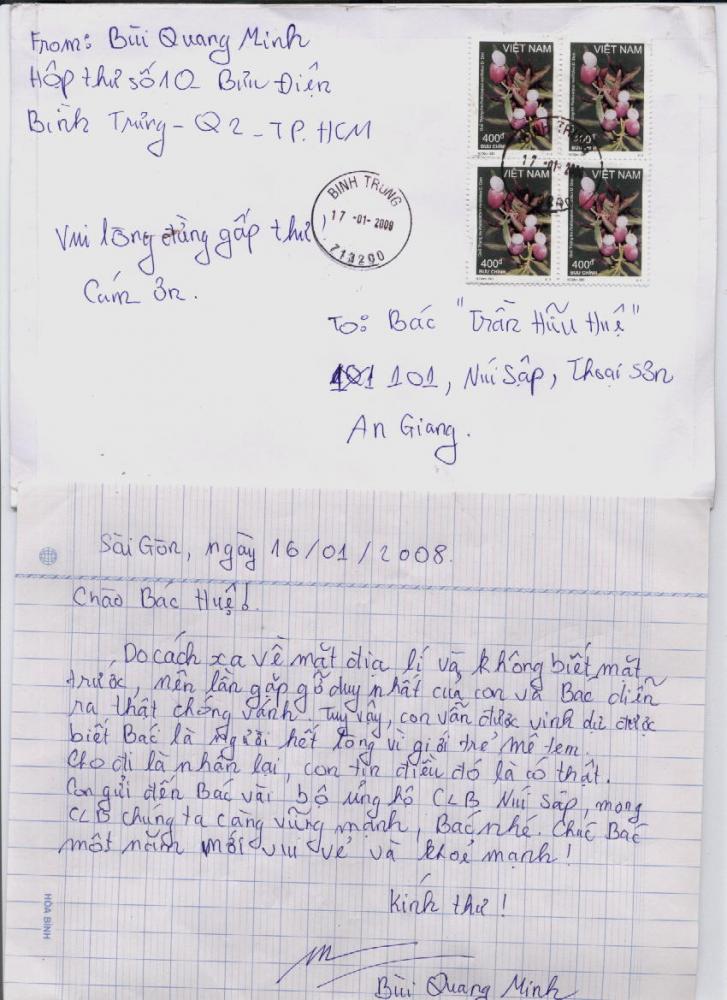 From: Bùi Quang Minh
Hộp thư số 10 Bưu Điện
Bình Trưng - Q2 - TP. HCM
VIỆT NAM
400đ
BƯU CHÍNH
VIỆT NAM
400đ
VIỆT NAM
400đ
BƯU CHÍNH
VIỆT NAM
400đ
BƯU CHÍNH
17 -01- 200
BINH TRUNG
17 -01- 2009
713290
Vui lòng đừng gấp thư!
Cám ơn.
To: Bác "Trần Hữu Huệ"
101, Núi Sập, Thoại Sơn
An Giang.
Sài Gòn, ngày 16/01/2008.
Chào Bác Huệ!
Do cách xa về mặt địa lí và không biết mặt
trước, nên lần gặp gỡ duy nhất của con và Bác diễn
ra thật chóng vánh. Tuy vậy, con vẫn được vinh dự được
biết Bác là người hết lòng vì giới trẻ mê tem.
Cho đi là nhận lại, con tin điều đó là có thật.
Con gửi đến Bác vài bộ ủng hộ CLB Núi Sập, mong
CLB chúng ta càng vững mạnh, Bác nhé. Chúc Bác
một năm mới vui vẻ và khoẻ mạnh!
Kính thư!
Bùi Quang Minh
HÒA BÌNH